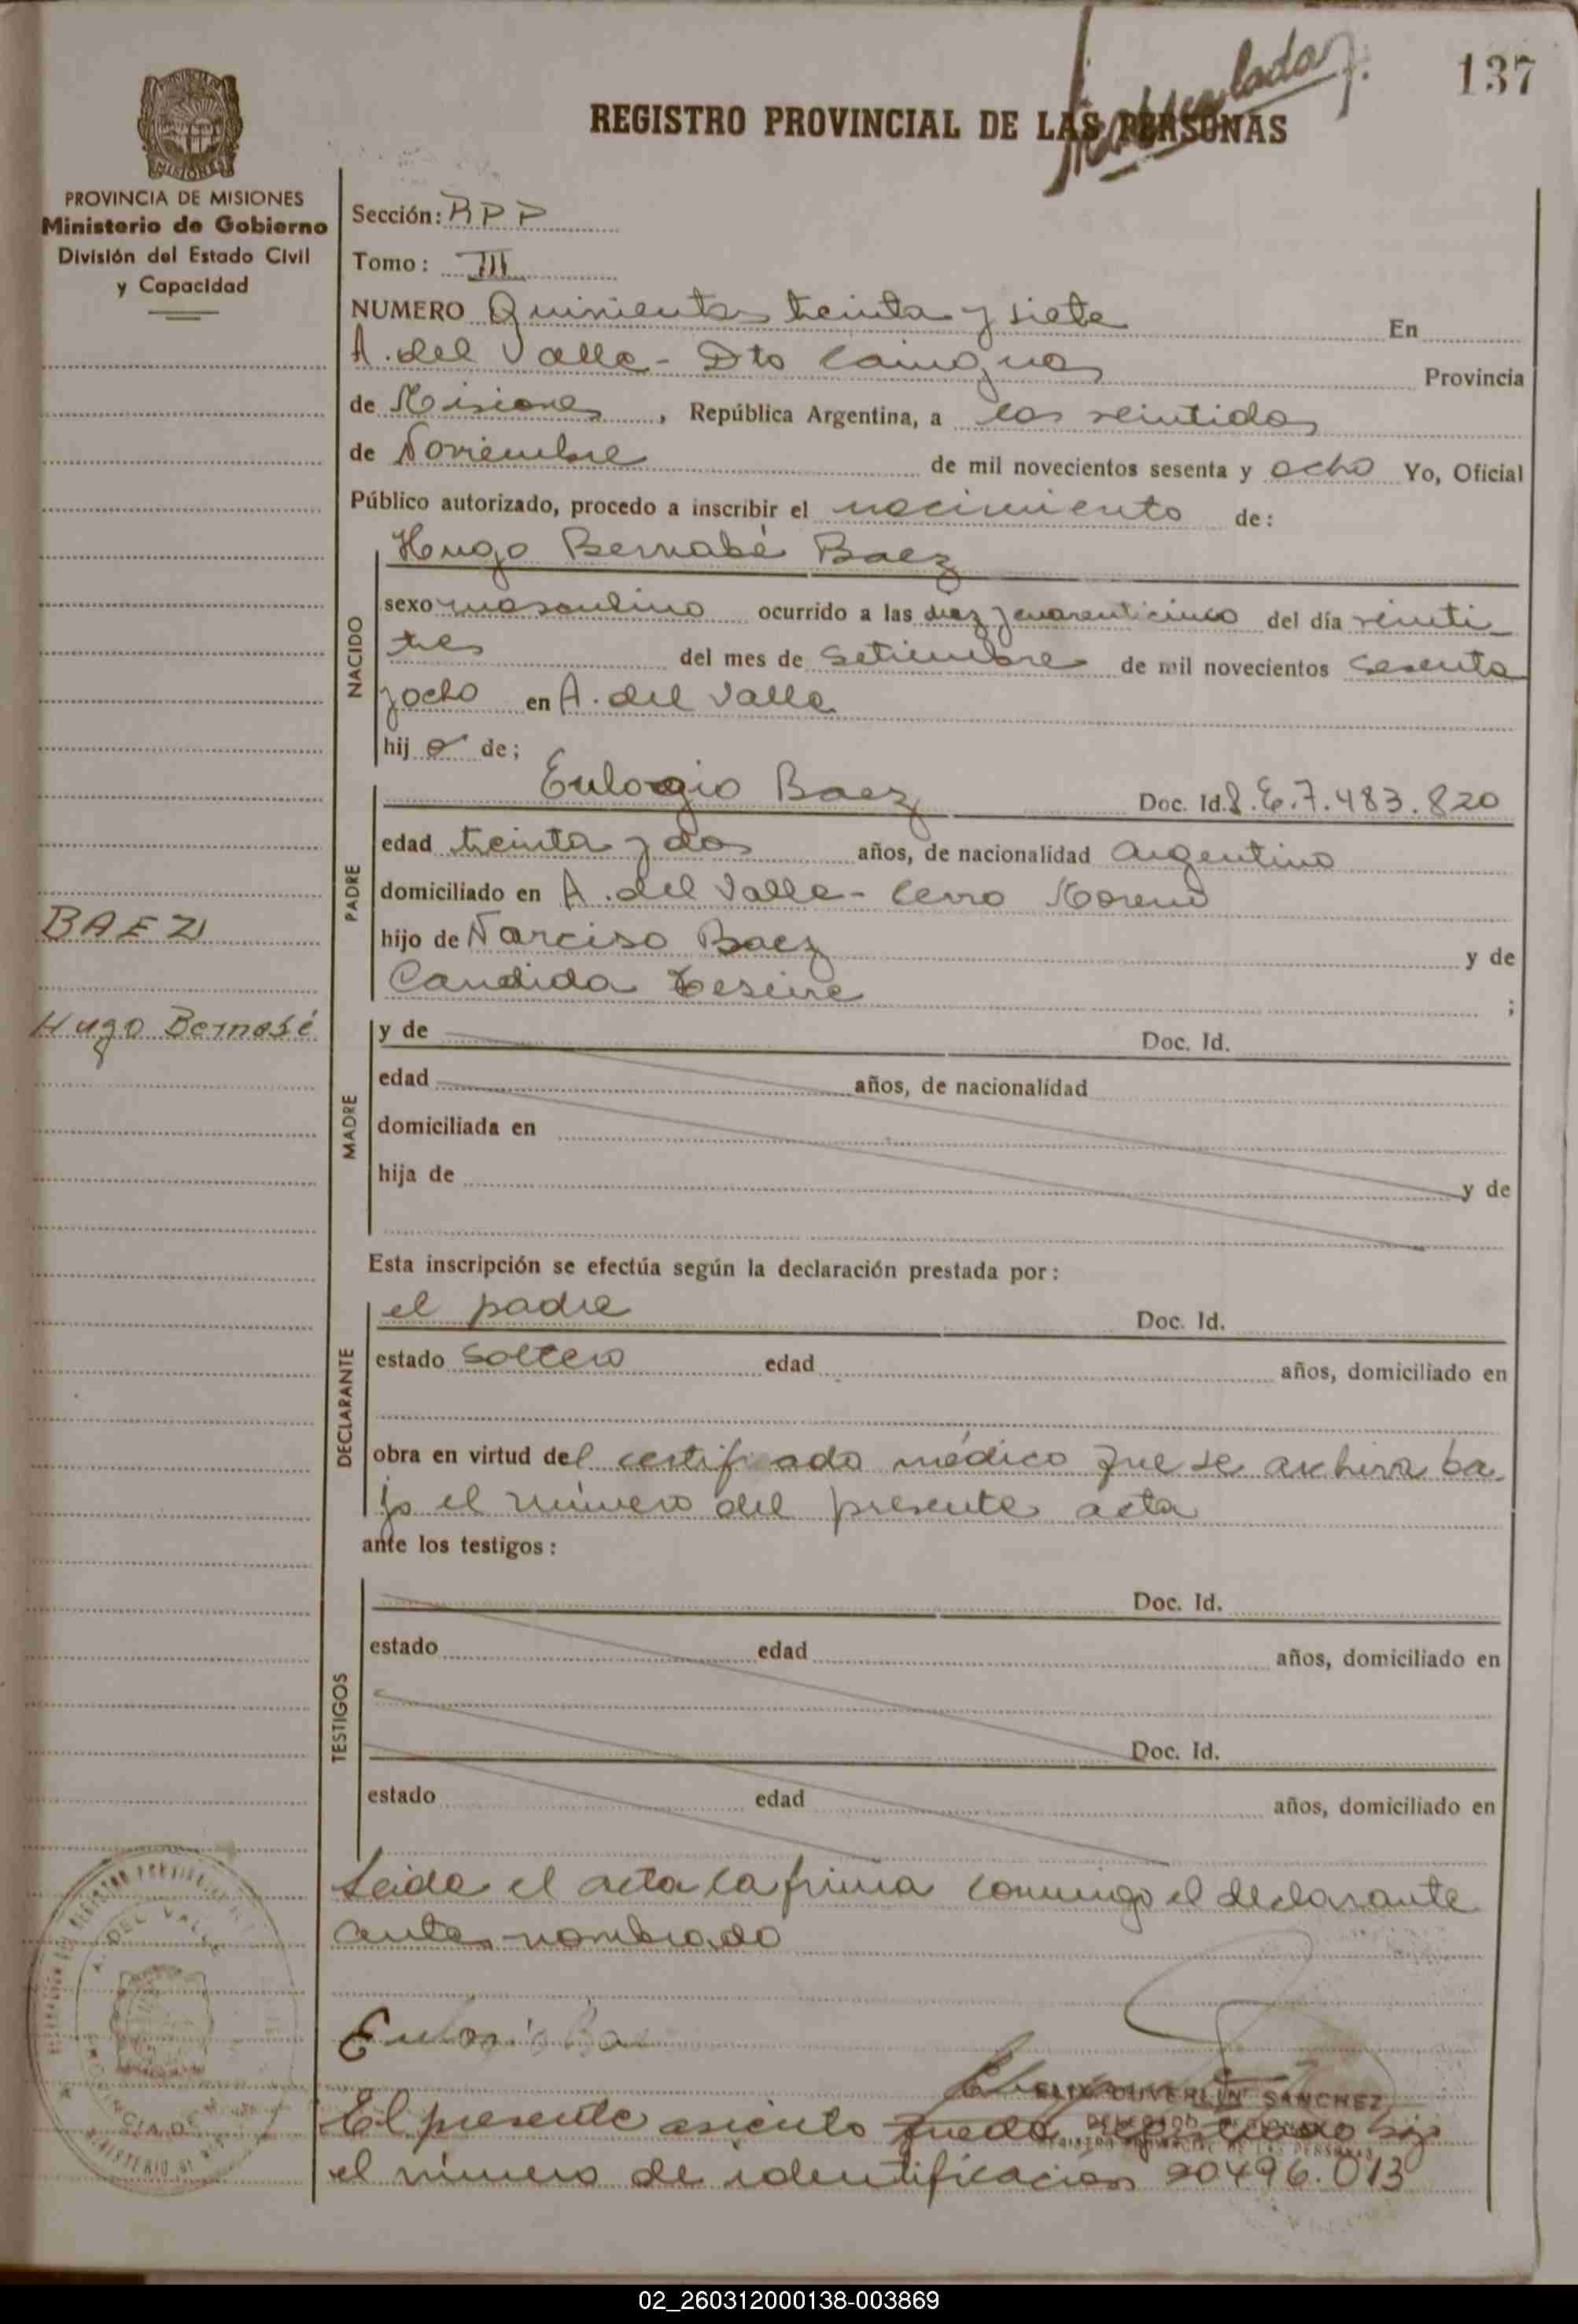 137
REGISTRO PROVINCIAL DE LAS PERSONAS
MISIONES
PROVINCIA DE MISIONES
Ministerio de Gobierno
División del Estado Civil
y Capacidad
Sección: RPP
Tomo: III
NUMERO Quinientos treinta y siete En
A. del Valle - Dto Cainguas Provincia
de Misiones, República Argentina, a los veintidos
de Noviembre de mil novecientos sesenta y ocho Yo, Oficial
Público autorizado, procedo a inscribir el nacimiento de:
NACIDO
Hugo Bernabé Baez
sexo masculino ocurrido a las diez y cuarenticinco del día veinti
tres del mes de Setiembre de mil novecientos sesenta
y ocho en A. del Valle
hijo de;
PADRE
Eulogio Baez Doc. Id. 7.483.820
edad treinta y dos años, de nacionalidad Argentino
domiciliado en A. del Valle - Cerro Moreno
hijo de Narciso Baez y de
Candida ;
BAEZ
Hugo Bernabé
MADRE
y de Doc. Id.
edad años, de nacionalidad
domiciliada en
hija de y de
Esta inscripción se efectúa según la declaración prestada por:
DECLARANTE
el padre Doc. Id.
estado Soltero edad años, domiciliado en
obra en virtud del certificado médico que se archiva ba-
jo el número del presente acta
ante los testigos:
TESTIGOS
Doc. Id.
estado edad años, domiciliado en
Doc. Id.
estado edad años, domiciliado en
Leida el acta la firma conmigo el declarante
antes nombrado
FELIX DUVERLIN SANCHEZ
REGISTRO PROVINCIAL DE LAS PERSONAS
A. DEL VALLE
El presente asiento queda registrado bajo
el número de identificación 20496.013
02_260312000138-003869